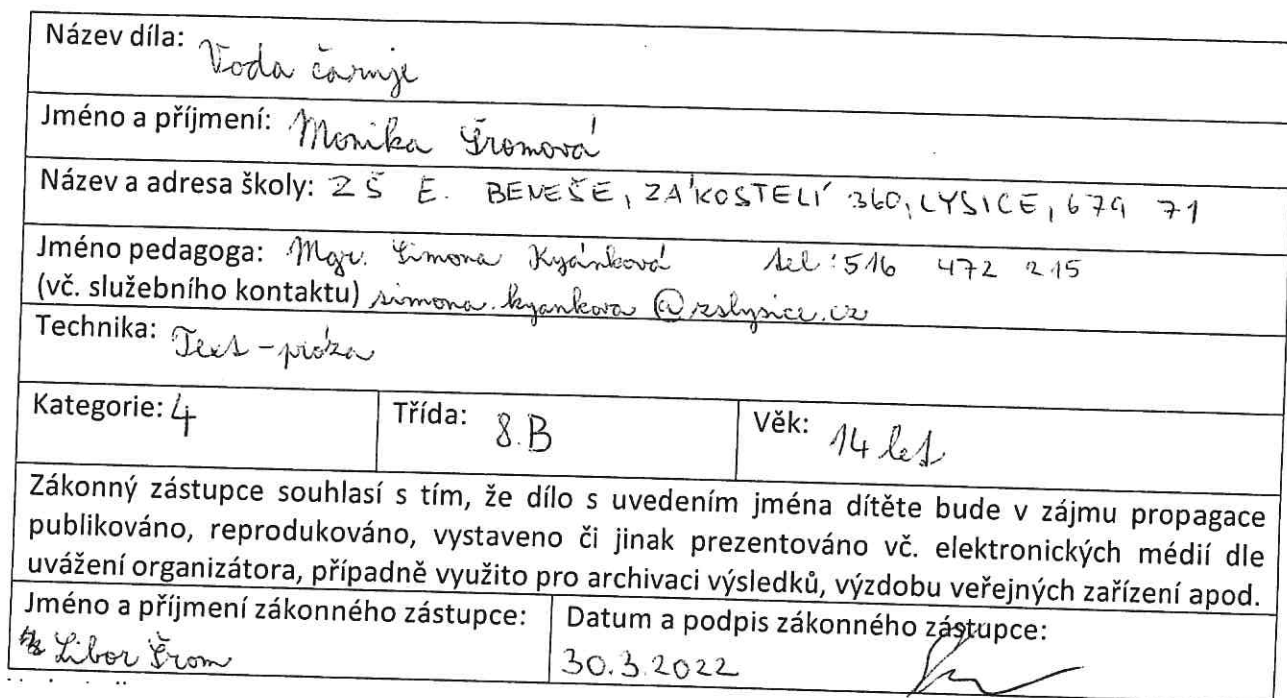 Název díla: Voda čaruje
Jméno a příjmení: Monika Šromová
Název a adresa školy: ZŠ E. BENEŠE, ZÁKOSTELÍ 360, LYSICE, 679 71
Jméno pedagoga: Mgr. Simona Kyánková tel: 516 472 215
(vč. služebního kontaktu) simona.kyankova@zslysice.cz
Technika: Text - próza
Kategorie: 4 Třída: 8.B Věk: 14 let
Zákonný zástupce souhlasí s tím, že dílo s uvedením jména dítěte bude v zájmu propagace
publikováno, reprodukováno, vystaveno či jinak prezentováno vč. elektronických médií dle
uvážení organizátora, případně využito pro archivaci výsledků, výzdobu veřejných zařízení apod.
Jméno a příjmení zákonného zástupce: Datum a podpis zákonného zástupce:
Libor Šrom 30.3.2022